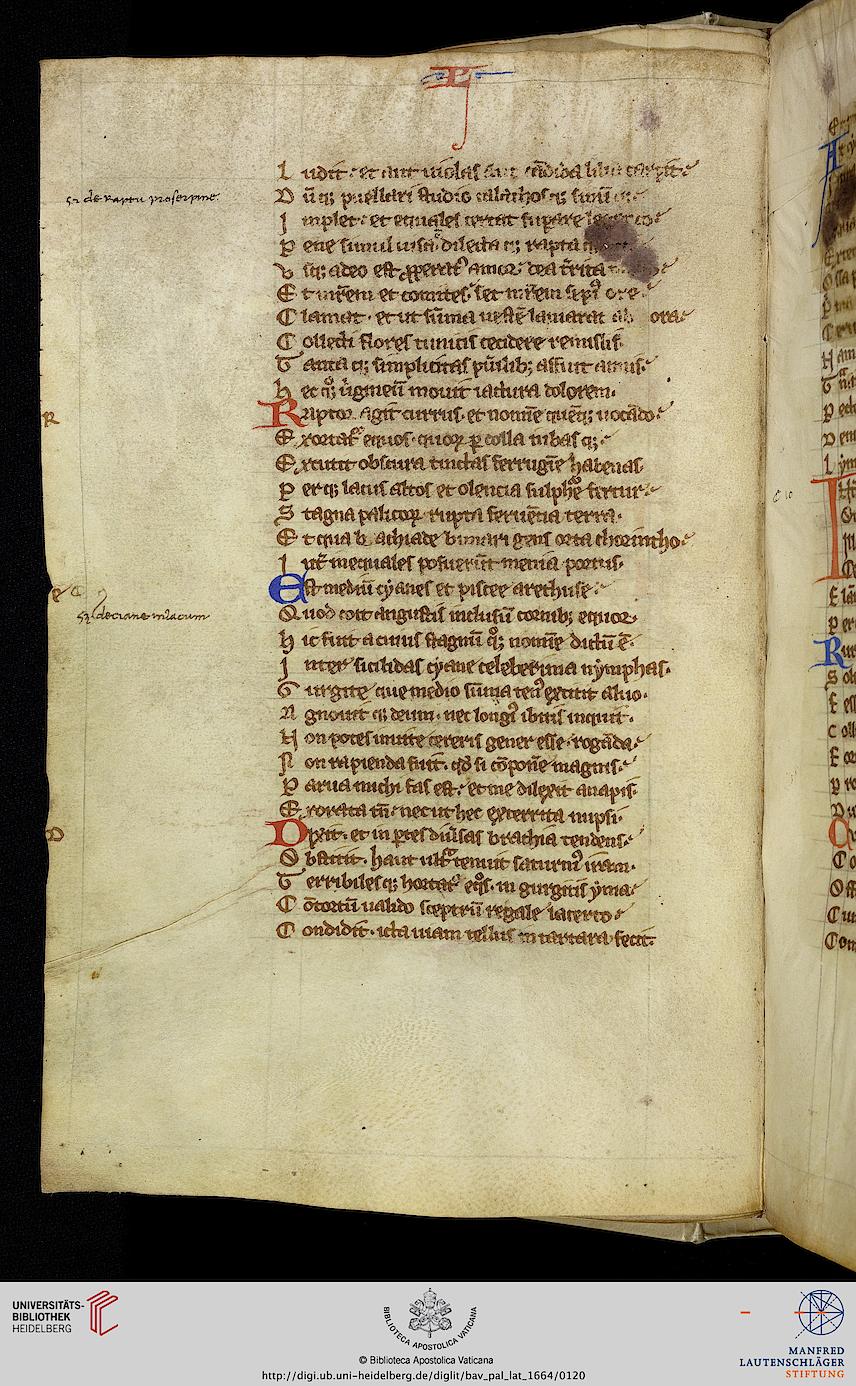 L udit · et aut uiolas aut candida lilia carpit
D ũ q; puellari studio calathos q; sinũ
I mplet · et equales certat supare legendo
P ene simul uisa ÷ dilecta q; rapta q;
V sq; adeo est ꝓperat᷒ amor · dea t̃rita
E t mr̃em et comites · set mr̃em sepi᷒ ore
C lamat · et ut sũma uestẽ laniarat ab ora
C ollecti flores tunicis cecidere remissis
T anta q; simplicitas puilib; affuit annis
h ec q; q̊; uirgineũ mouit iactura dolorem ·
R aptor agit currus · et nomĩe quẽq; uocãdo
E xortat᷒ equos · quoꝝ ꝑ colla iubas q;
E xcutit obscura tinctas ferrugĩe habenas
P erq; lacus altos et olencia sulphᷓe fertur
S tagna palicoꝝ rupta feruẽcia terra ·
E t qua bachiade bimari gens orta chorintho
I nt̃ inequales posuerũt menia portus ·
E st mediũ cẏanes et pisee arethuse
Q uod coit angustis inclusũ cornib; equor
h ic fuit a cuius stagnũ q̊; nomĩe dictũ ẽ ·
I nter sicilidas cẏane celeberima nẏmphas ·
G urgite que medio sũma ten᷒ extitit aluo ·
A gnouit q; deum · nec longi᷒ ibitis inquit ·
N on potes inuite cereris gener esse · rogãda
N on rapienda fuit · qď si cõpoñe magnis
P arua michi fas est · et me dilexit anapis
E xorata tñ · nec ut hec exterrita nupsi ·
D ixit · et in ꝑtes diũsas brachia tendens
O bstitit · haut ultᷓ tenuit saturni᷒ iram ·
T erribiles q; hortat᷒ eq̊s · in gurgitis ẏma
C õtortũ ualido sceptrũ regale lacerto
C ondidit · icta uiam tellus in tartara fecit
de raptu proserpine
de ciane in lacum
R
e
D
UNIVERSITÄTS-
BIBLIOTHEK
HEIDELBERG
BIBLIOTECA APOSTOLICA VATICANA
© Biblioteca Apostolica Vaticana
http://digi.ub.uni-heidelberg.de/diglit/bav_pal_lat_1664/0120
MANFRED
LAUTENSCHLÄGER
STIFTUNG